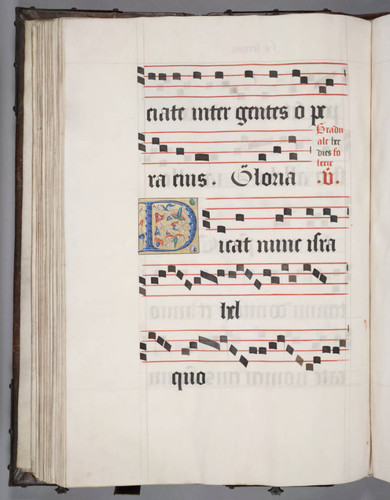 ciate inter gentes o pe
ra eius. Gloria .V.
Gradu
ale hec
dies so
Dicat nunc isra
hel
quo